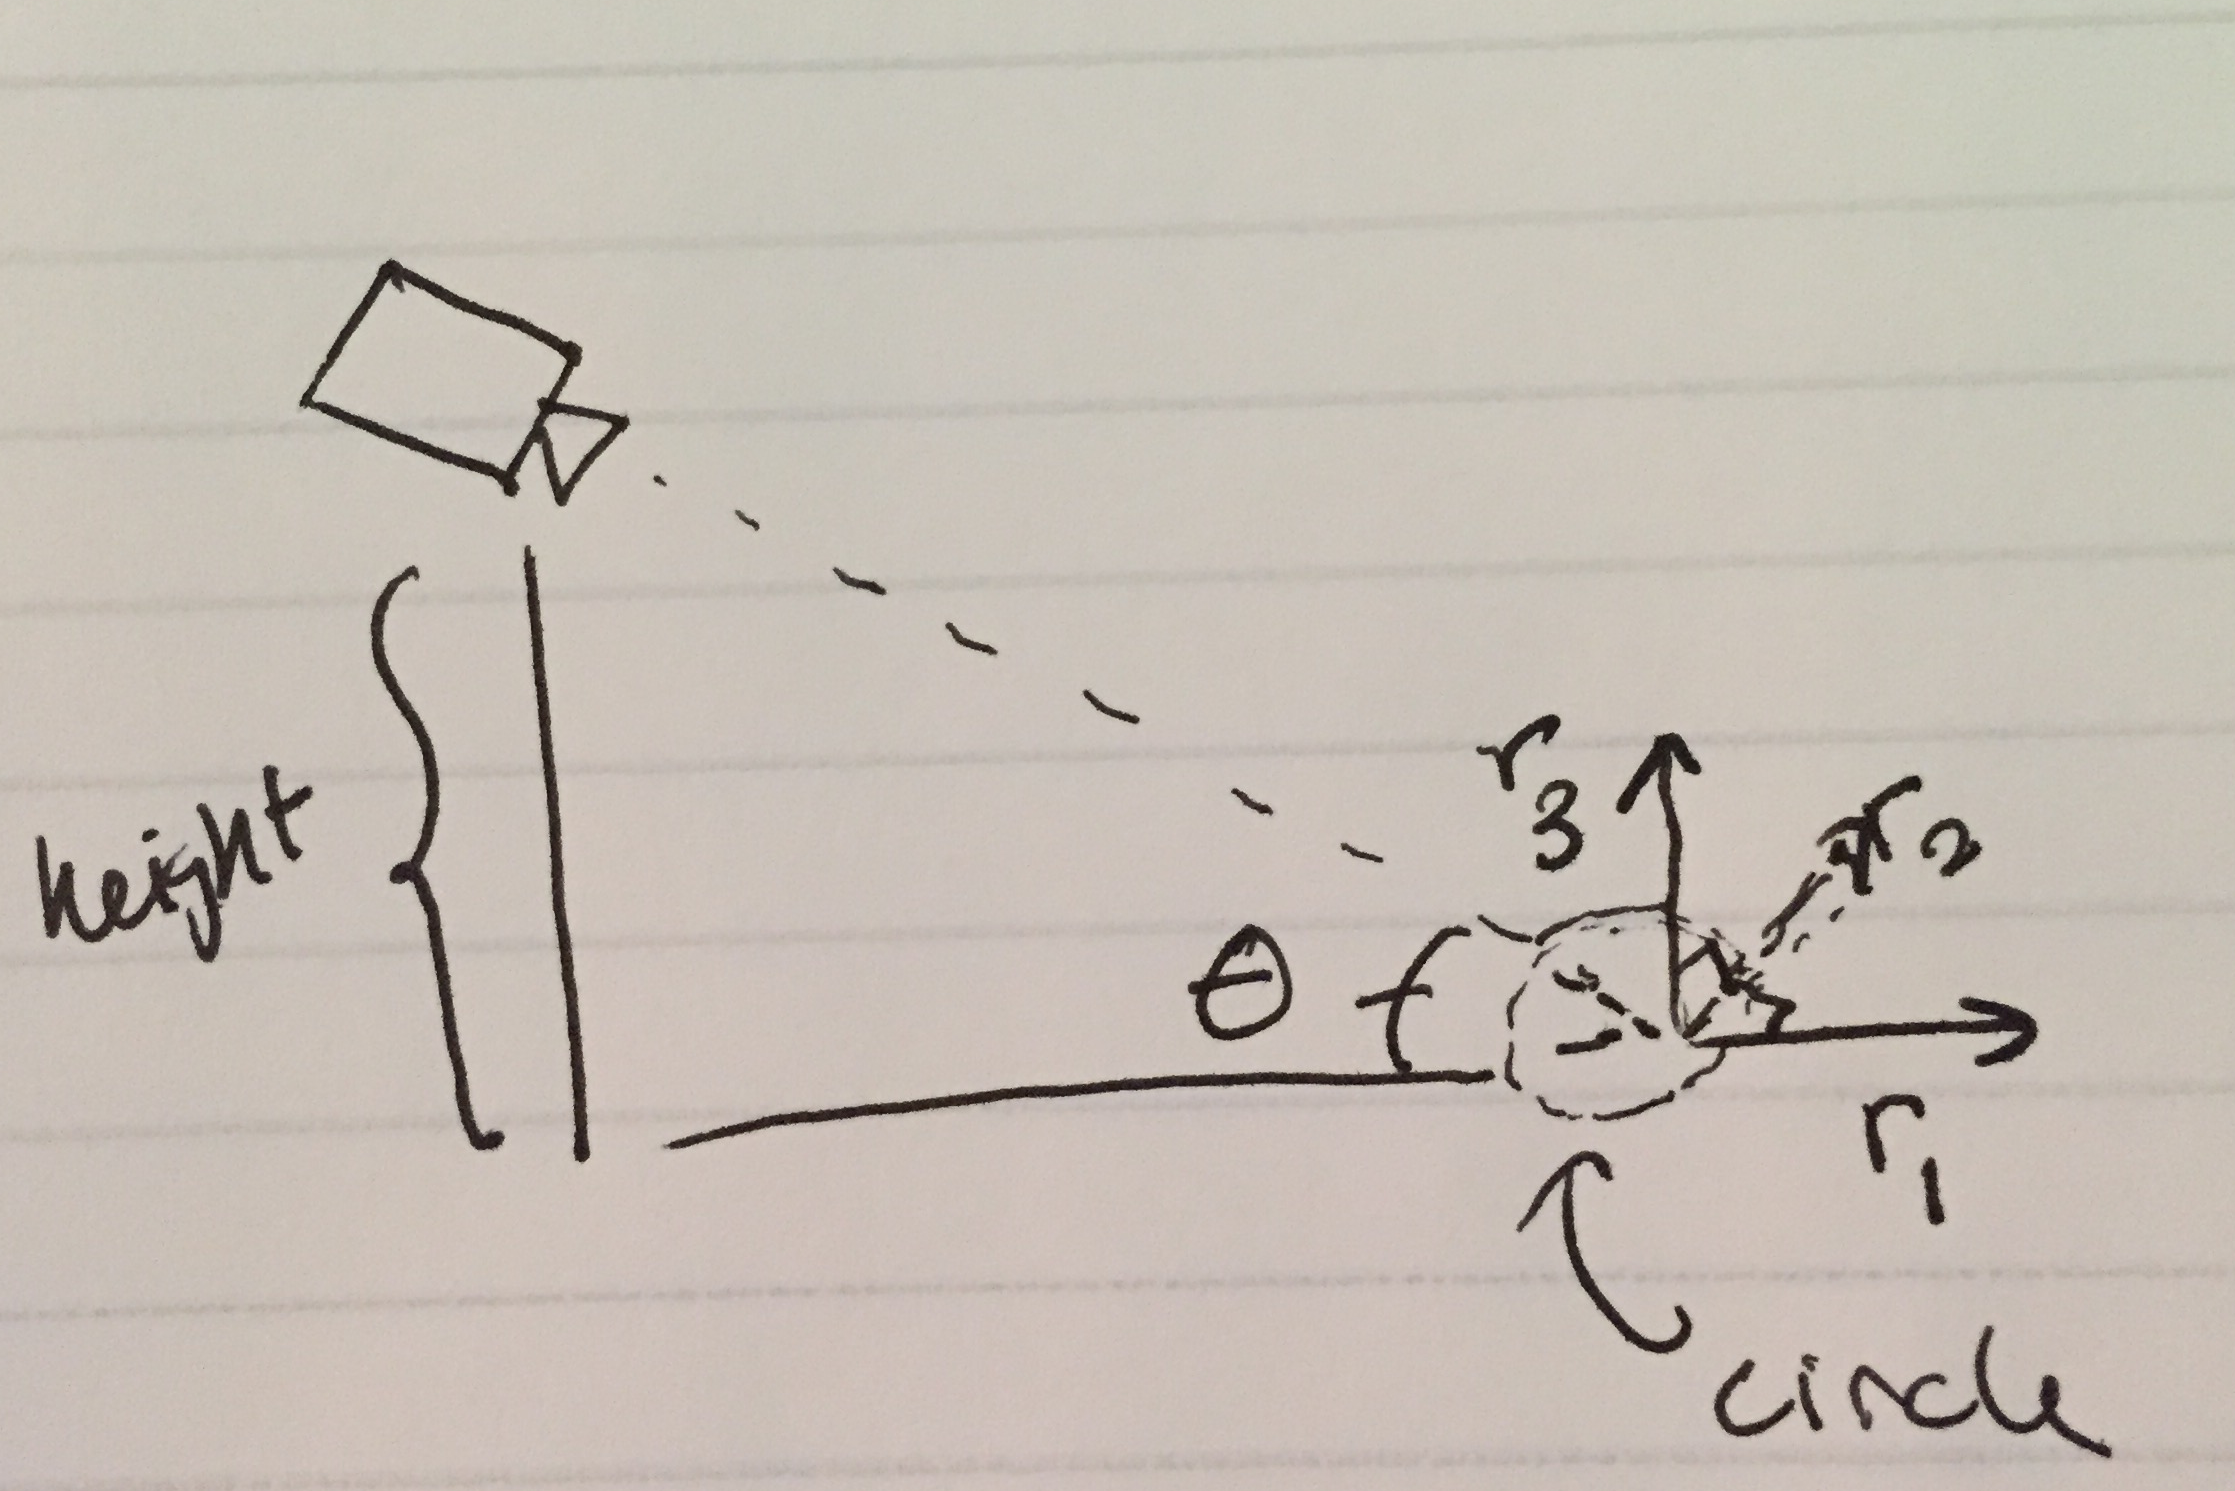 height
θ
r3
r2
r1
circle